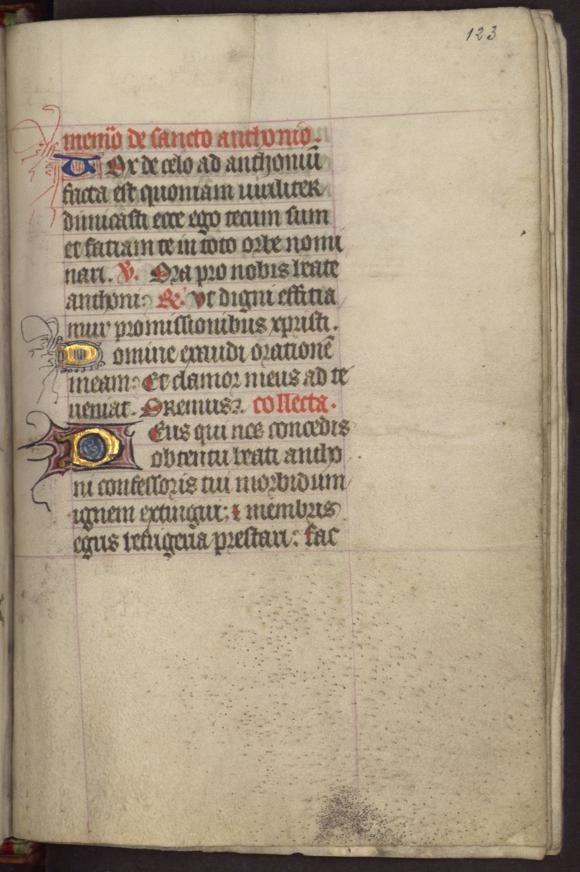 123
memo͞ de sancto anthonio.
Vox de celo ad anthoniū
facta est quoniam uiriliter
dimicasti ecce ego tecum sum
et faciam te in toto orbe nomi
nari. V. Ora pro nobis beate
anthoni. R. vt digni efficia
mur promissionibus xpristi.
Domine exaudi orationē
meam. Et clamor meus ad te
ueniat. Oremus. collecta.
Deus qui nos concedis
obtentu beati antho
ni confessoris tui morbidum
ignem extingui: ⁊ membris
egris refrigeria prestari: fac